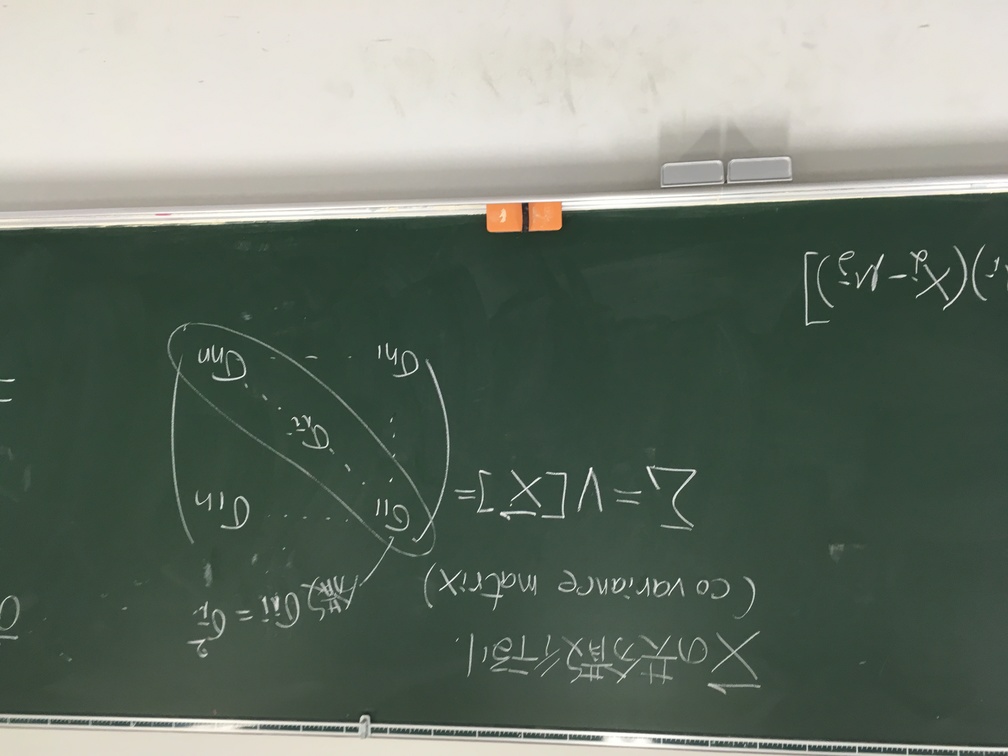 X⃗の共分散行列.
(covariance matrix)
分散 σii = σi²
Σ = V[X⃗] = (σ11 ⋯ σ1n
⋮ ⋱ σii ⋱
σn1 ⋯ σnn)
)(Xj − μj)]